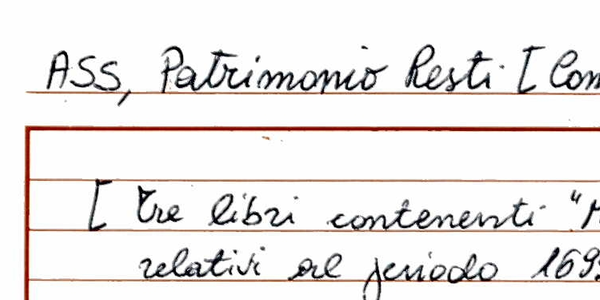 ASS, Patrimonio Resti [ Com
[ Tre libri contenenti "M
relativi al periodo 169